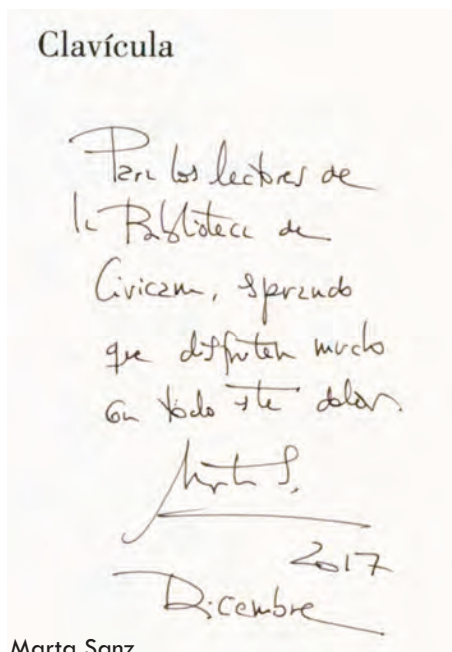 Clavícula
Para los lectores de
la Biblioteca de
Civican, esperando
que disfruten mucho
con todo este dolor.
Marta S.
2017
Diciembre
Marta Sanz